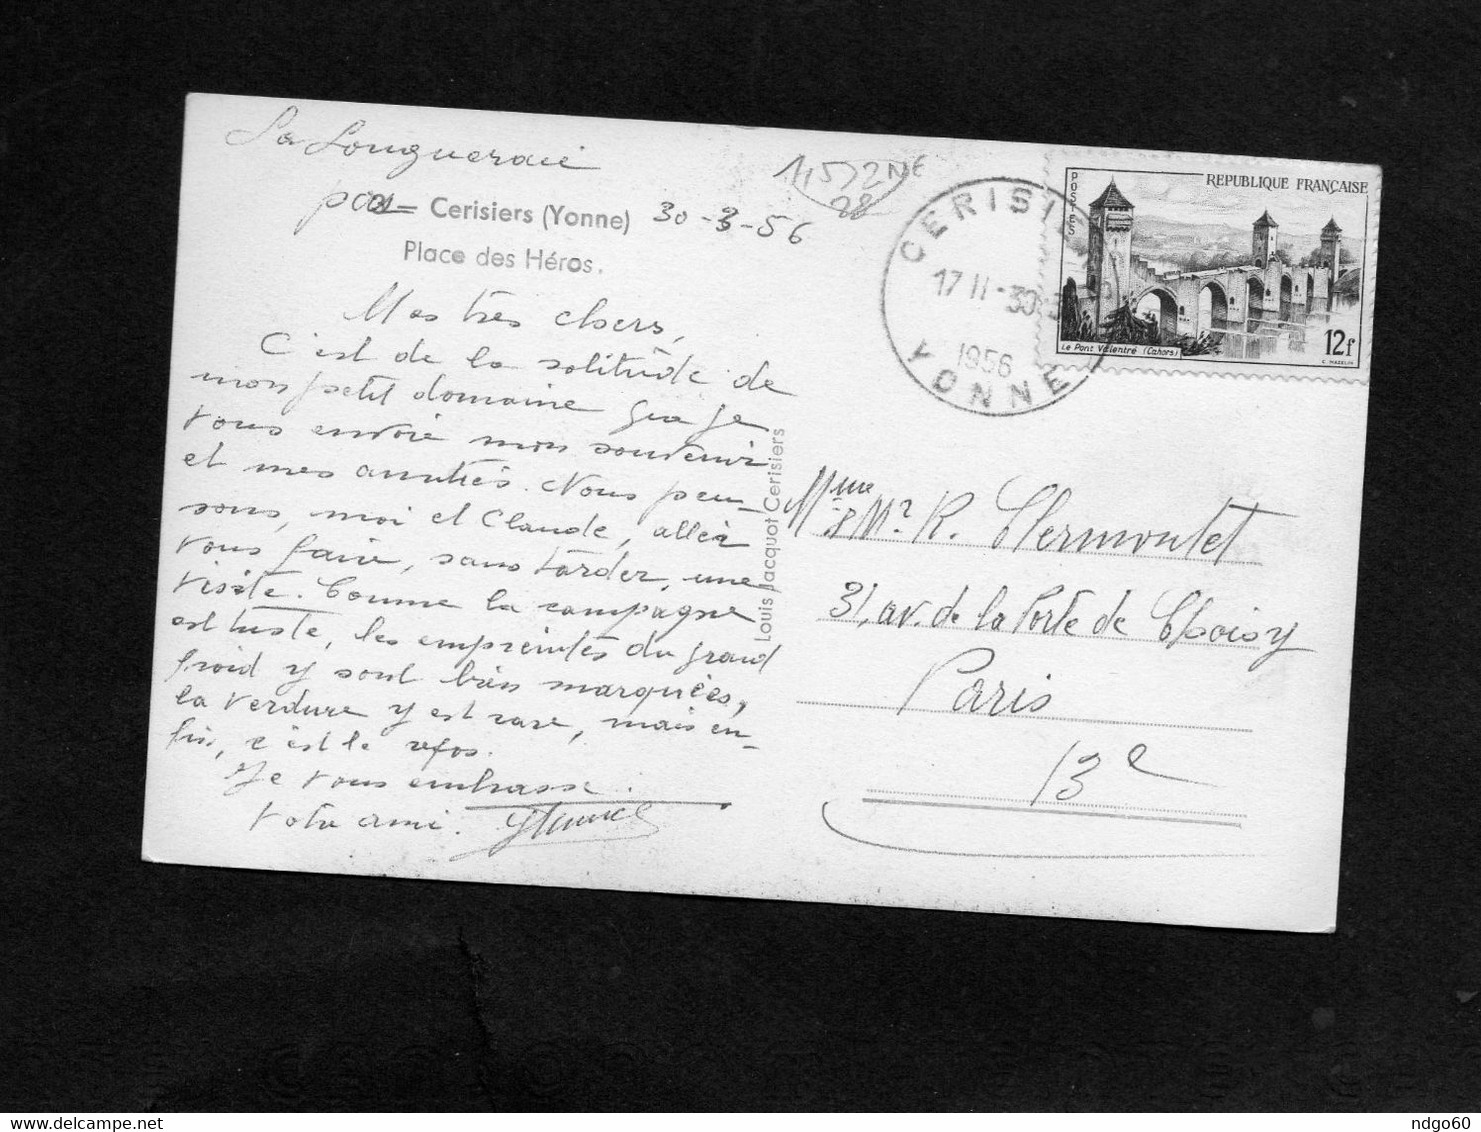 La Lougueraie
par Cerisiers (Yonne) 30-3-56
Place des Héros.
Mes très chers,
C'est de la solitude de
mon petit domaine que je
vous envoie mon souvenir
et mes amitiés. Nous pen-
sons, moi et Claude, aller
vous faire, sans tarder, une
visite. Comme la campagne
est triste, les empreintes du grand
froid y sont bien marquées,
la verdure y est rare, mais en-
fin, c'est le repos.
Je vous embrasse.
Votre ami.
Louis Jacquot Cerisiers
28
CERISIERS
17 H - 30-3
1956
YONNE
POSTES
REPUBLIQUE FRANÇAISE
Le Pont Valentré (Cahors)
12f
C. MAZELIN
Mme
& Mr R. Clermontet
31, av. de la Porte de Choisy
Paris
13e
ndgo60